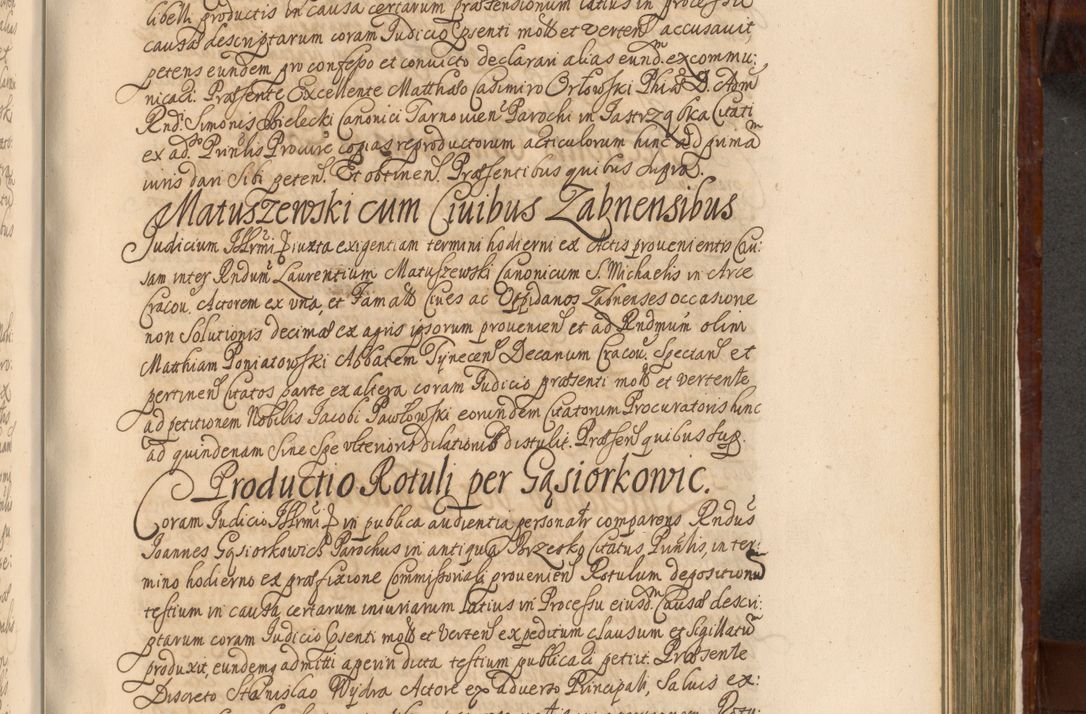 libelli productis in causa certarum praetensionum latius in processu
causae descriptarum coram Judicio psenti mota et verten accusavit,
petens eundem pro confesso et convicto declarari alias eund. excommu:
nicari. Praesente Excellente Matthaeo Casimiro Orłowski Phiae D. Adm
Rndi Simonis Bielecki Canonici Tarnovien Parochi in Jastrząbka Citati
ex ad. Prinlis Procure copias reproductorum articulorum hinc ad prima
iuris dari sibi peten. Et obtinen. Praesentibus quibus supra.
Matuszewski cum Civibus Zabnensibus
Judicium Illrmi iuxta exigentiam termini hodierni ex Actis provenientis Cau:
sam inter Rndum Laurentium Matuszewski Canonicum S. Michaelis in Arce
Cracou. Actorem ex una, et Famatos Cives ac Oppidanos Zabnenses occasione
non solutionis decimae ex agris ipsorum provenien et ad Rndmum olim
Matthiam Poniatowski Abbatem Tynecen Decanum Cracou. Spectan et
pertinen Citatos parte ex altera coram Judicio praesenti mota et vertente
ad petitionem Nobilis Jacobi Pawłowski eorundem Citatorum Procuratoris hinc
ad quindenam sine spe ulterioris dilationis distulit. Praesen quibus sup.
Productio Rotuli per Gąsiorkowic.
Coram Judicio Illrmi in publica audientia personalr comparens Rndus
Joannes Gąsiorkowich Parochus in antiqua Brzesko Citatus Prinlis, in ter:
mino hodierno ex praefixione Commissoriali provenien Rotulum depositionu
testium in causa certarum iniuriarum latius in Processu eiusd. Causae descri:
ptarum coram Judicio psenti mota et verten expeditum clausum et sigillatu
produxit, eundemq admitti aperiri dicta testium publicari petiit. Praesente
Discreto Stanislao Wydra Actore ex adverso Principali, Salvis ex: